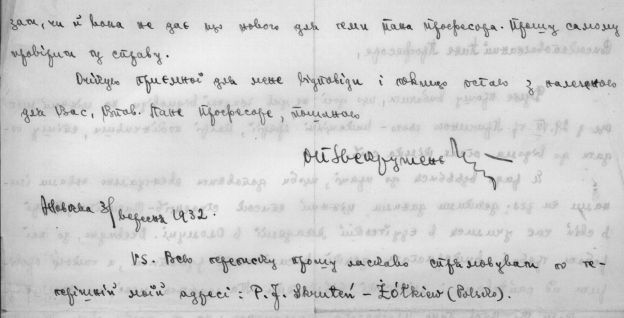 зати, чи й вона не дає що нового для теми пана професора. Прошу самому
провірити ту справу.
Очікую приємної для мене відповіди і покищо остаю з належною
для Вас, Впов. Пане Професоре, пошаною
Жовква 3/ вересня 1932.
VS. Всю переписку прошу ласкаво спрямовувати по те-
перішній моїй адресі: P. J. Skruteń – Żółkiew (Polsko).